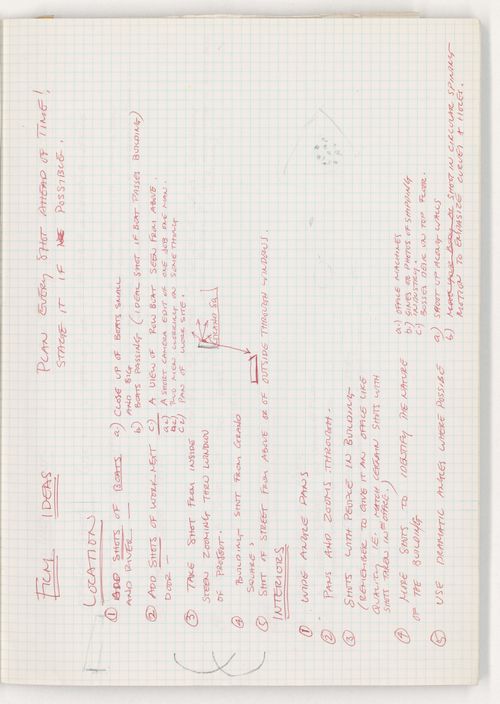 FILM IDEAS
PLAN EVERY SHOT AHEAD OF TIME!
STAGE IT IF POSSIBLE.
LOCATION
① ADD SHOTS OF BOATS
AND RIVER —
a) CLOSE UP OF BOATS SMALL
AND BIG
b) BOATS PASSING (IDEAL SHOT IF BOAT PASSES BUILDING)
c) A VIEW OF ROW BOAT SEEN FROM ABOVE.
② ADD SHOTS OF WORK NEXT
DOOR —
a) A SHORT CAMERA EDIT OF ONE JOB ONE MAN.
b) TWO MEN WORKING ON SOMETHING
c) PAN OF WORK SITE.
③ TAKE SHOT FROM INSIDE
STEEN ZOOMING THRU WINDOW
OF PROJECT.
④ BUILDING SHOT FROM GRAND
SQUARE.
GRAND SQ
⑤ SHOT OF STREET FROM ABOVE OR OF OUTSIDE THROUGH WINDOWS.
INTERIORS
① WIDE ANGLE PANS
② PANS AND ZOOMS THROUGH.
③ SHOTS WITH PEOPLE IN BUILDING
(REMEMBER TO GIVE IT AN OFFICE LIKE
QUALITY I.E. MATCH CERTAIN SHOTS WITH
SHOTS TAKEN IN OFFICE.)
④ MORE SHOTS TO IDENTIFY THE NATURE
OF THE BUILDING
a) OFFICE MACHINES
b) SIGNS OR PHOTOS OF SHIPPING
INDUSTRY.
c) BOSSES DESK ON TOP FLOOR.
⑤ USE DRAMATIC ANGLES WHERE POSSIBLE
a) SHOOT UP ALONG WALLS
b) SHOOT IN CIRCULAR SPINNING
MOTION TO EMPHASIZE CURVES & HOLES.